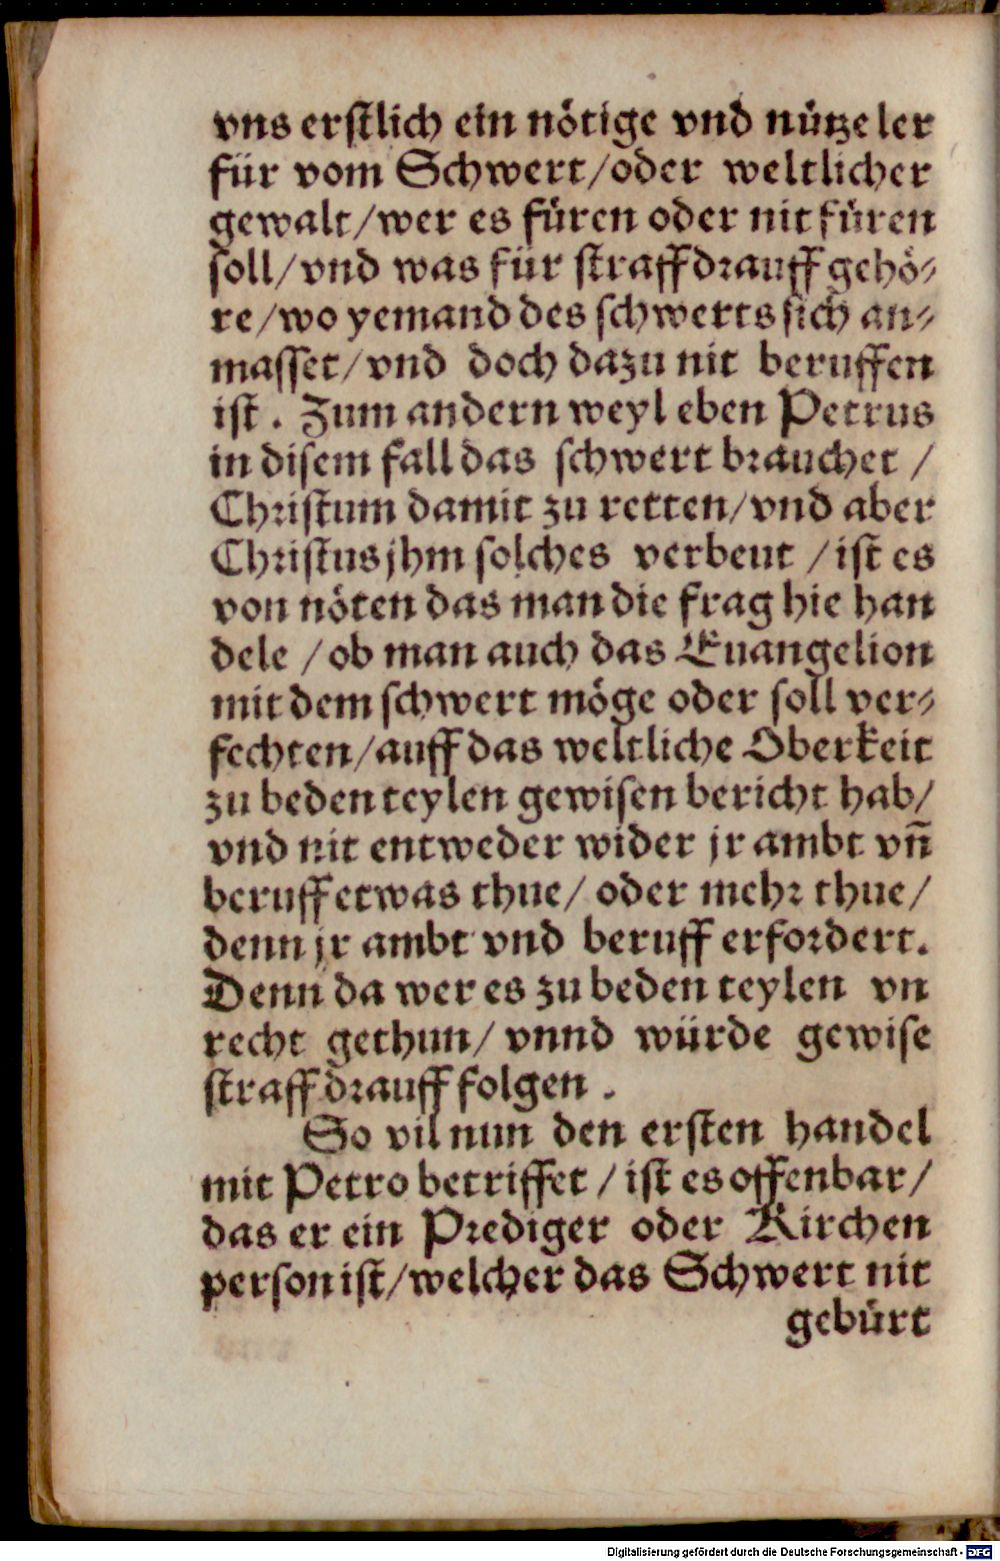 vns erstlich ein nötige vnd nütze ler
für vom Schwert/oder weltlicher
gewalt/wer es füren oder nit füren
soll/vnd was für straff drauff gehö⸗
re/wo yemand des schwerts sich an⸗
masset/vnd doch dazu nit beruffen
ist. Zum andern weyl eben Petrus
in disem fall das schwert brauchet /
Christum damit zu retten/vnd aber
Christus jhm solches verbeut /ist es
von nöten das man die frag hie han
dele /ob man auch das Euangelion
mit dem schwert möge oder soll ver⸗
fechten/auff das weltliche Oberkeit
zu beden teylen gewisen bericht hab/
vnd nit entweder wider jr ambt vñ
beruff etwas thue/ oder mehr thue/
denn jr ambt vnd beruff erfordert.
Denn da wer es zu beden teylen vn
recht gethun/ vnnd würde gewise
straff drauff folgen.
So vil nun den ersten handel
mit Petro betriffet /ist es offenbar/
das er ein Prediger oder Kirchen
person ist/welcher das Schwert nit
gebürt
Digitalisierung gefördert durch die Deutsche Forschungsgemeinschaft - DFG